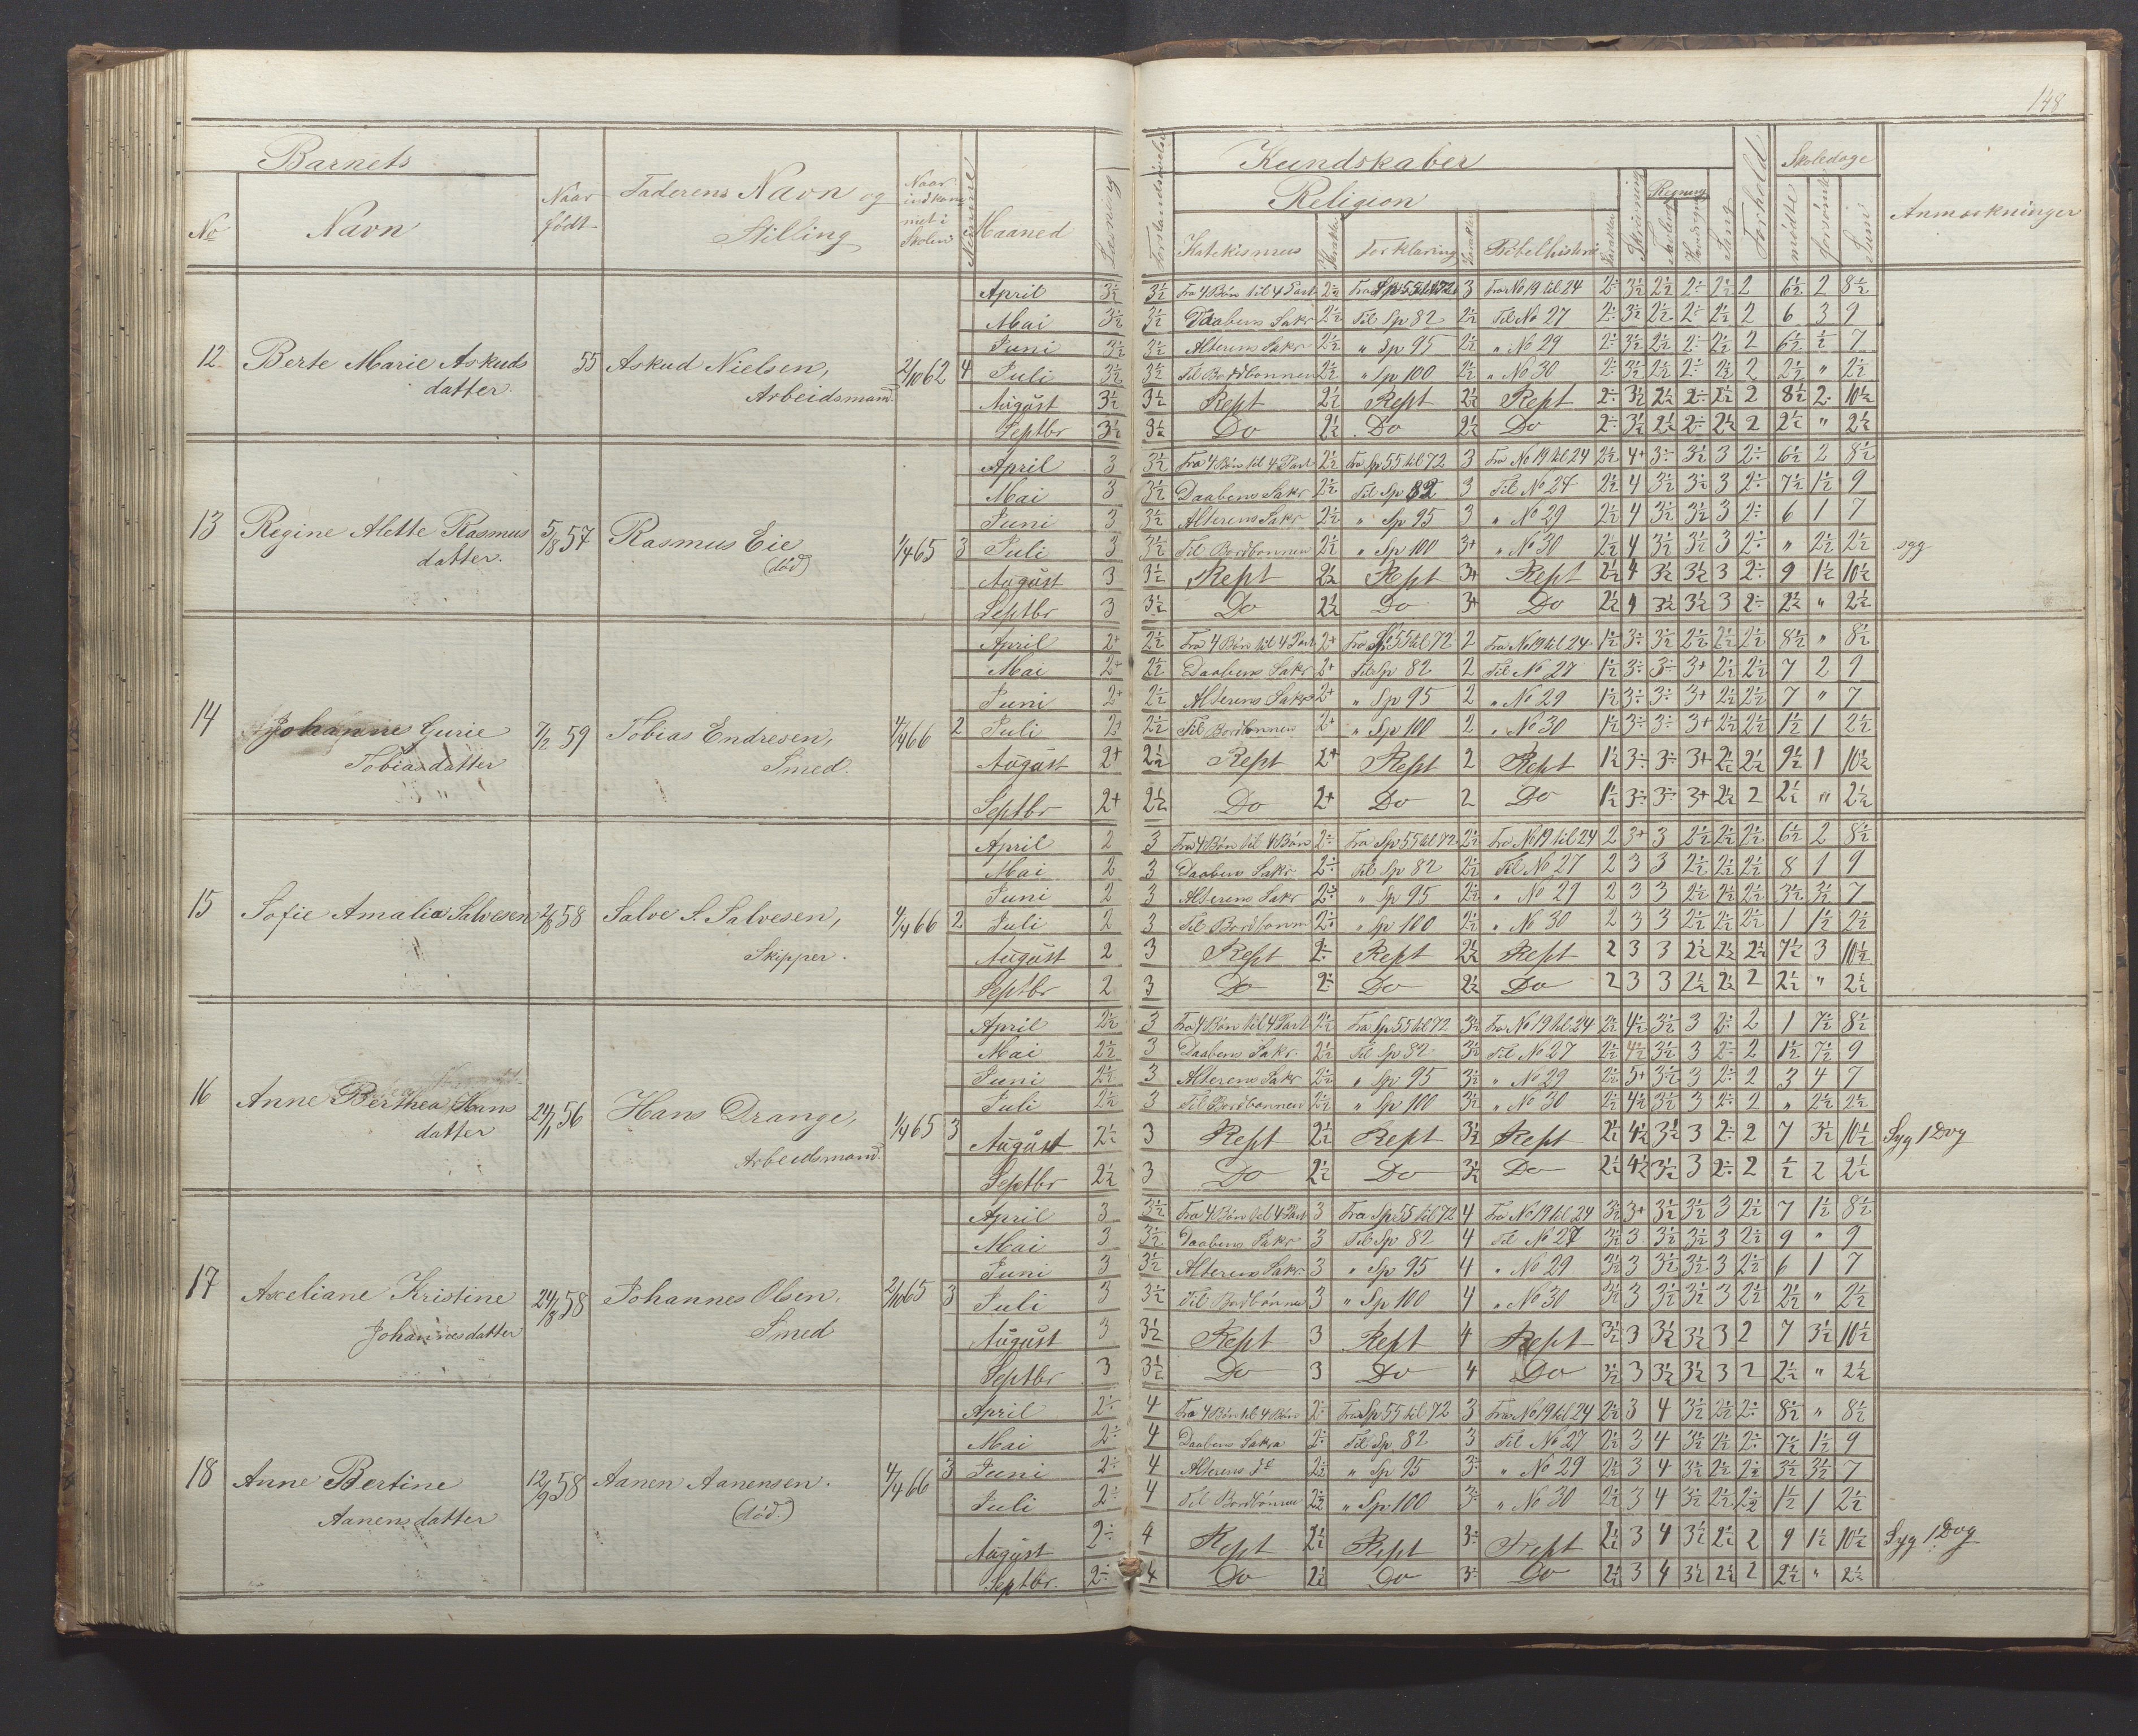 148
Barnets
No
Navn
Naar født
Faderens Navn og Stilling
Naar indkommet i Skolen
Nummer
Maaned
Læsning
Forstandsøvelse
Kundskaber
Religion
Katekismus
Karakter
Forklaring
Karakter
Bibelhistorie
Karakter
Skrivning
Regning
Tavle
Hoved
Sang
Forhold
Skoledage
mødte
forsømte
Sum
Anmærkninger
12 Berte Marie Askuds datter. 55 Askud Nielsen, Arbeidsmand. 2/10 62 4
April 3½ 3½ Fra 4 Bøn til 4 Part 2½ Fra Sp 55 til 72 3 Fra No 19 til 24 2÷ 3½ 2½ 2÷ 2½ 2 6½ 2 8½
Mai 3½ 3½ Daabens Sakr 2½ Til Sp 82 2½ Til No 27 2÷ 3½ 2½ 2÷ 2½ 2 6 3 9
Juni 3½ 3½ Alterens Sakr 2½ " Sp 95 2½ " No 29 2÷ 3½ 2½ 2÷ 2½ 2 6½ ½ 7
Juli 3½ 3½ Til Bordbønnen 2½ " Sp 100 2½ " No 30 2÷ 3½ 2½ 2÷ 2½ 2 2½ " 2½
August 3½ 3½ Rept 2½ Rept 2½ Rept 2÷ 3½ 2½ 2÷ 2½ 2 8½ 2 10½
Septbr 3½ 3½ Do 2½ Do 2½ Do 2÷ 3½ 2½ 2÷ 2½ 2 2½ " 2½
13 Regine Alette Rasmus datter. 5/8 57 Rasmus Eie (død) 1/4 65 3
April 3 3½ Fra 4 Bøn til 4 Part 2½ Fra Sp 55 til 72 3 Fra No 19 til 24 2½ 4+ 3÷ 3½ 3 2÷ 6½ 2 8½
Mai 3 3½ Daabens Sakr 2½ Til Sp 82 3 Til No 27 2½ 4 3½ 3½ 3 2÷ 7½ 1½ 9
Juni 3 3½ Alterens Sakr 2½ " Sp 95 3 " No 29 2½ 4 3½ 3½ 3 2÷ 6 1 7
Juli 3 3½ Til Bordbønnen 2½ " Sp 100 3+ " No 30 2½ 4 3½ 3½ 3 2÷ " 2½ 2½ syg
August 3 3½ Rept 2½ Rept 3+ Rept 2½ 4 3½ 3½ 3 2÷ 9 1½ 10½
Septbr 3 3½ Do 2½ Do 3+ Do 2½ 4 3½ 3½ 3 2÷ 2½ " 2½
14 Johanne Gurie Tobiasdatter 7/2 59 Tobias Endresen, Smed. 4/4 66 2
April 2+ 2½ Fra 4 Bøn til 4 Part 2+ Fra Sp 55 til 72 2 Fra No 19 til 24 1½ 3÷ 3½ 2½ 2½ 2½ 8½ " 8½
Mai 2+ 2½ Daabens Sakr 2+ Til Sp 82 2 Til No 27 1½ 3÷ 3÷ 3+ 2½ 2½ 7 2 9
Juni 2+ 2½ Alterens Sakr 2+ " Sp 95 2 " No 29 1½ 3÷ 3÷ 3+ 2½ 2½ 7 " 7
Juli 2+ 2½ Til Bordbønnen 2+ " Sp 100 2 " No 30 1½ 3÷ 3÷ 3+ 2½ 2½ 1½ 1 2½
August 2+ 2½ Rept 2+ Rept 2 Rept 1½ 3÷ 3÷ 3+ 2½ 2½ 9½ 1 10½
Septbr 2+ 2½ Do 2+ Do 2 Do 1½ 3÷ 3÷ 3+ 2½ 2 2½ " 2½
15 Sofie Amalia Salvesen 2/8 58 Salve S. Salvesen, Skipper. 4/4 66 2
April 2 3 Fra 4 Bøn til 4 Bøn 2÷ Fra Sp 55 til 72 2½ Fra No 19 til 24 2 3+ 3 2½ 2½ 2½ 6½ 2 8½
Mai 2 3 Daabens Sakr. 2÷ Til Sp 82 2½ Til No 27 2 3 3 2½ 2½ 2½ 8 1 9
Juni 2 3 Alterens Sakr 2÷ " Sp 95 2½ " No 29 2 3 3 2½ 2½ 2½ 3½ 3½ 7
Juli 2 3 Til Bordbønn 2÷ " Sp 100 2½ " No 30 2 3 3 2½ 2½ 2½ 1 1½ 2½
August 2 3 Rept 2÷ Rept 2½ Rept 2 3 3 2½ 2½ 2½ 7½ 3 10½
Septbr 2 3 Do 2÷ Do 2½ Do 2 3 3 2½ 2½ 2 2½ " 2½
16 Anne Berthea Hans datter 24/11 56 Hans Drange, Arbeidsmand. 1/4 65 3
April 2½ 3 Fra 4 Bøn til 4 Part 2½ Fra Sp 55 til 72 3½ Fra No 19 til 24 2½ 4½ 3½ 3 2÷ 2 1 7½ 8½
Mai 2½ 3 Daabens Sakr. 2½ Til Sp 82 3½ Til No 27 2½ 4½ 3½ 3 2÷ 2 1½ 7½ 9
Juni 2½ 3 Alterens Sakr 2½ " Sp 95 3½ " No 29 2½ 5+ 3½ 3 2÷ 2 3 4 7
Juli 2½ 3 Til Bordbønnen 2½ " Sp 100 3½ " No 30 2½ 4½ 3½ 3 2÷ 2 " 2½ 2½
August 2½ 3 Rept 2½ Rept 3½ Rept 2½ 4½ 3½ 3 2÷ 2 7 3½ 10½ Syg 1 Dag
Septbr 2½ 3 Do 2½ Do 3½ Do 2½ 4½ 3½ 3 2÷ 2 ½ 2 2½
17 Axeliane Kristine Johannesdatter 24/8 58 Johannes Olsen, Smed 2/10 65 3
April 3 3½ Fra 4 Bøn til 4 Part 3 Fra Sp 55 til 72 4 Fra No 19 til 24 3½ 3+ 3½ 3½ 3 2½ 7 1½ 8½
Mai 3 3½ Daabens Sakr 3 Til Sp 82 4 Til No 27 3½ 3 3½ 3½ 3 2½ 9 " 9
Juni 3 3½ Alterens Sakr. 3 " Sp 95 4 " No 29 3½ 3 3½ 3½ 3 2½ 6 1 7
Juli 3 3½ Til Bordbønnen 3 " Sp 100 4 " No 30 3½ 3 3½ 3½ 3 2½ 2½ " 2½
August 3 3½ Rept 3 Rept 4 Rept 3½ 3 3½ 3½ 3 2 7 3½ 10½
Septbr 3 3½ Do 3 Do 4 Do 3½ 3 3½ 3½ 3 2 2½ " 2½
18 Anne Bertine Aanensdatter 12/9 58 Aanen Aanensen. (død.) 4/4 66 3
April 2÷ 4 Fra 4 Bøn til 4 Bøn 2÷ Fra Sp 55 til 72 3 Fra No 19 til 24 2½ 3 4 3½ 2½ 2÷ 8½ " 8½
Mai 2÷ 4 Daabens Sakra 2÷ Til Sp 82 3 Til No 27 2½ 3 4 3½ 2½ 2÷ 7½ 1½ 9
Juni 2÷ 4 Alterens 2½ " Sp 95 3÷ " No 29 2½ 3 4 3½ 2½ 2½ 3½ 3½ 7
Juli 2÷ 4 Til Bordbønnen 2½ " Sp 100 3÷ " No 30 2½ 3 4 3½ 2½ 2½ 1½ 1 2½
August 2÷ 4 Rept 2½ Rept 3÷ Rept 2½ 3 4 3½ 2½ 2 9 1½ 10½ Syg 1 Dag
Septbr. 2÷ 4 Do 2½ Do 3÷ Do 2½ 3 4 3½ 2½ 2 2½ " 2½